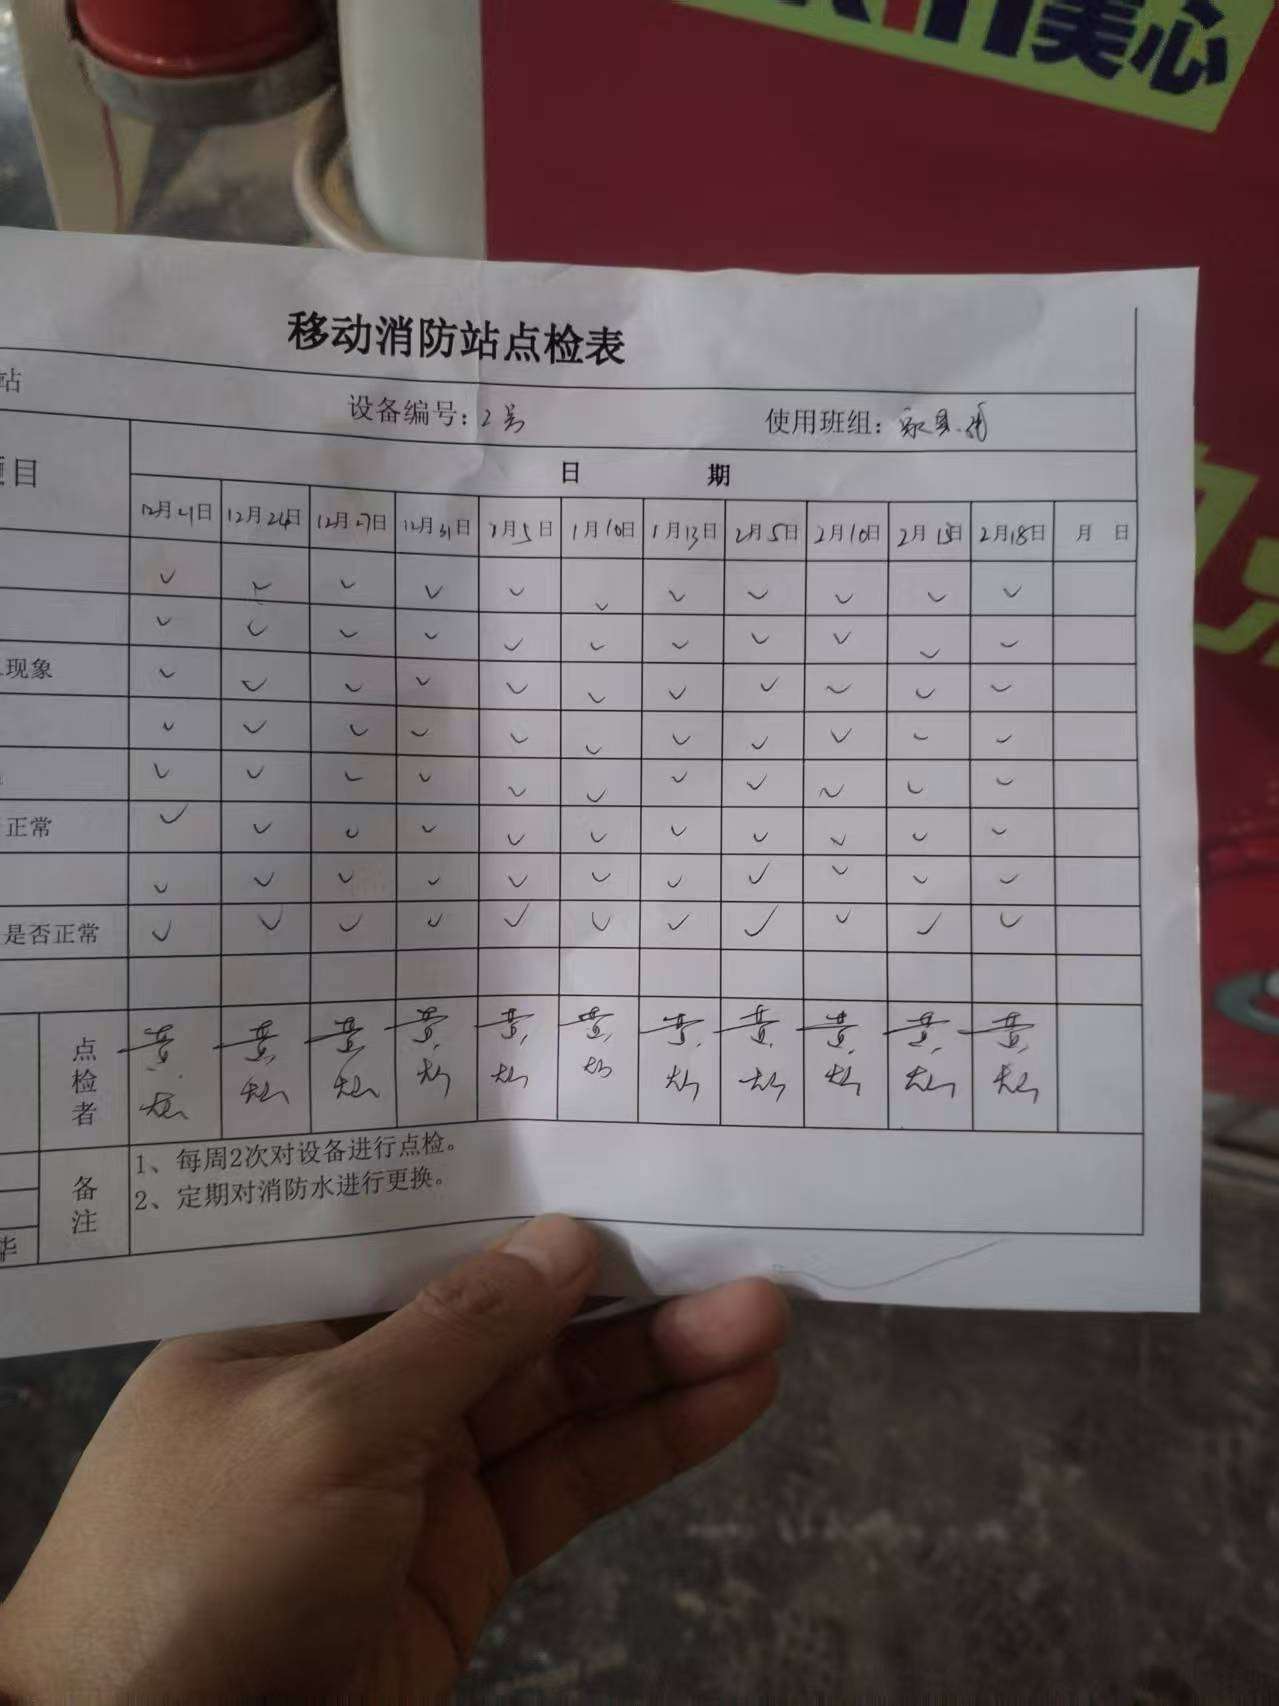 美心
移动消防站点检表
站
设备编号：2号 使用班组：家具
项目
日 期
12月21日 12月24日 12月27日 12月31日 1月5日 1月10日 1月13日 2月5日 2月10日 2月15日 2月18日 月 日
✓ ✓ ✓ ✓ ✓ ✓ ✓ ✓ ✓ ✓ ✓
✓ ✓ ✓ ✓ ✓ ✓ ✓ ✓ ✓ ✓ ✓
现象 ✓ ✓ ✓ ✓ ✓ ✓ ✓ ✓ ✓ ✓ ✓
✓ ✓ ✓ ✓ ✓ ✓ ✓ ✓ ✓ ✓ ✓
✓ ✓ ✓ ✓ ✓ ✓ ✓ ✓ ✓ ✓ ✓
正常 ✓ ✓ ✓ ✓ ✓ ✓ ✓ ✓ ✓ ✓ ✓
✓ ✓ ✓ ✓ ✓ ✓ ✓ ✓ ✓ ✓ ✓
是否正常 ✓ ✓ ✓ ✓ ✓ ✓ ✓ ✓ ✓ ✓ ✓
点检者 黄 黄 黄 黄 黄 黄 黄 黄 黄 黄 黄
备注
1、每周2次对设备进行点检。
2、定期对消防水进行更换。
华